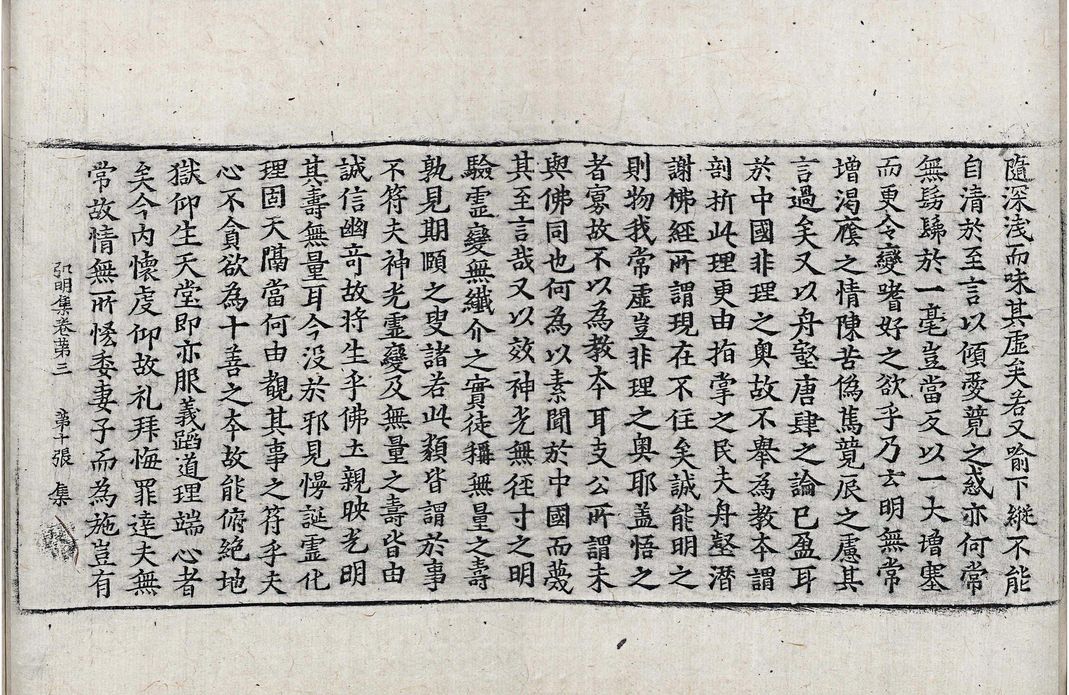 隨深浅而味其虛矣若又喻下縱不能
自清於至言以傾愛競之惑亦何常
無髣髴於一毫豈當反以一大增塞
而更令變嗜好之欲乎乃云明無常
增渴䕃之情陳苦偽篤競辰之慮其
言過矣又以舟壑唐肆之論已盈耳
於中國非理之奧故不舉為教本謂
剖析此理更由指掌之民夫舟壑潛
謝佛經所謂現在不住矣誠能明之
則物我常虛豈非理之奧耶盖悟之
者寡故不以為教本耳支公所謂未
與佛同也何為以素聞於中國而蔑
其至言哉又以效神光無徑寸之明
驗靈變無纖介之實徒稱無量之壽
孰見期頤之叟諸若此類皆謂於事
不符夫神光靈變及無量之壽皆由
誠信幽竒故將生乎佛土親映光明
其壽無量耳今没於邪見慢誕靈化
理固天隔當何由覩其事之符乎夫
心不貪欲為十善之本故能俯絶地
獄仰生天堂即亦服義蹈道理端心者
矣今內懷虔仰故礼拜悔罪達夫無
常故情無所悋委妻子而為施豈有
弘明集卷第三　第十張　集